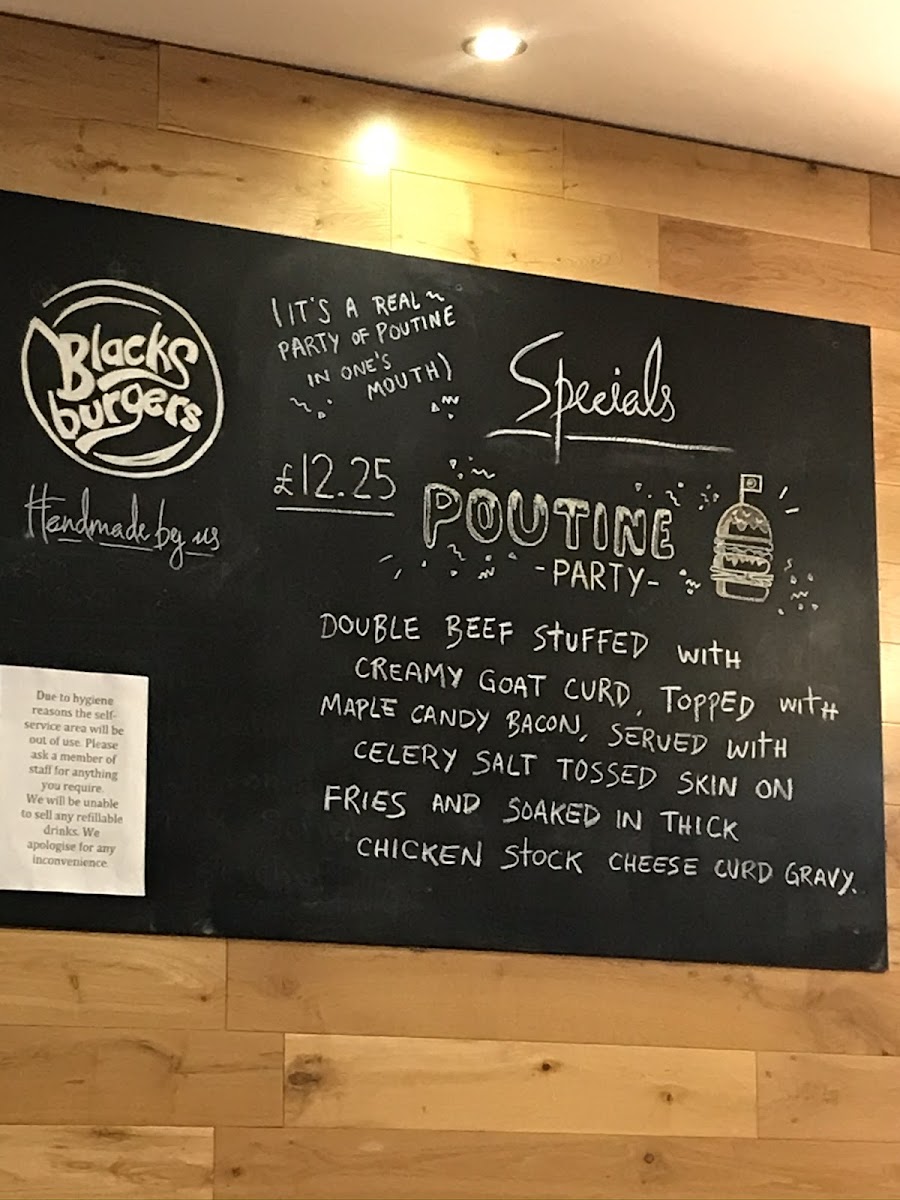 Blacks
burgers
Handmade by us
(IT'S A REAL
PARTY OF POUTINE
IN ONE'S
MOUTH)
£12.25
Specials
POUTINE
-PARTY-
DOUBLE BEEF STUFFED WITH
CREAMY GOAT CURD, TOPPED WITH
MAPLE CANDY BACON, SERVED WITH
CELERY SALT TOSSED SKIN ON
FRIES AND SOAKED IN THICK
CHICKEN STOCK CHEESE CURD GRAVY.
Due to hygiene
reasons the self-
service area will be
out of use. Please
ask a member of
staff for anything
you require.
We will be unable
to sell any refillable
drinks. We
apologise for any
inconvenience.